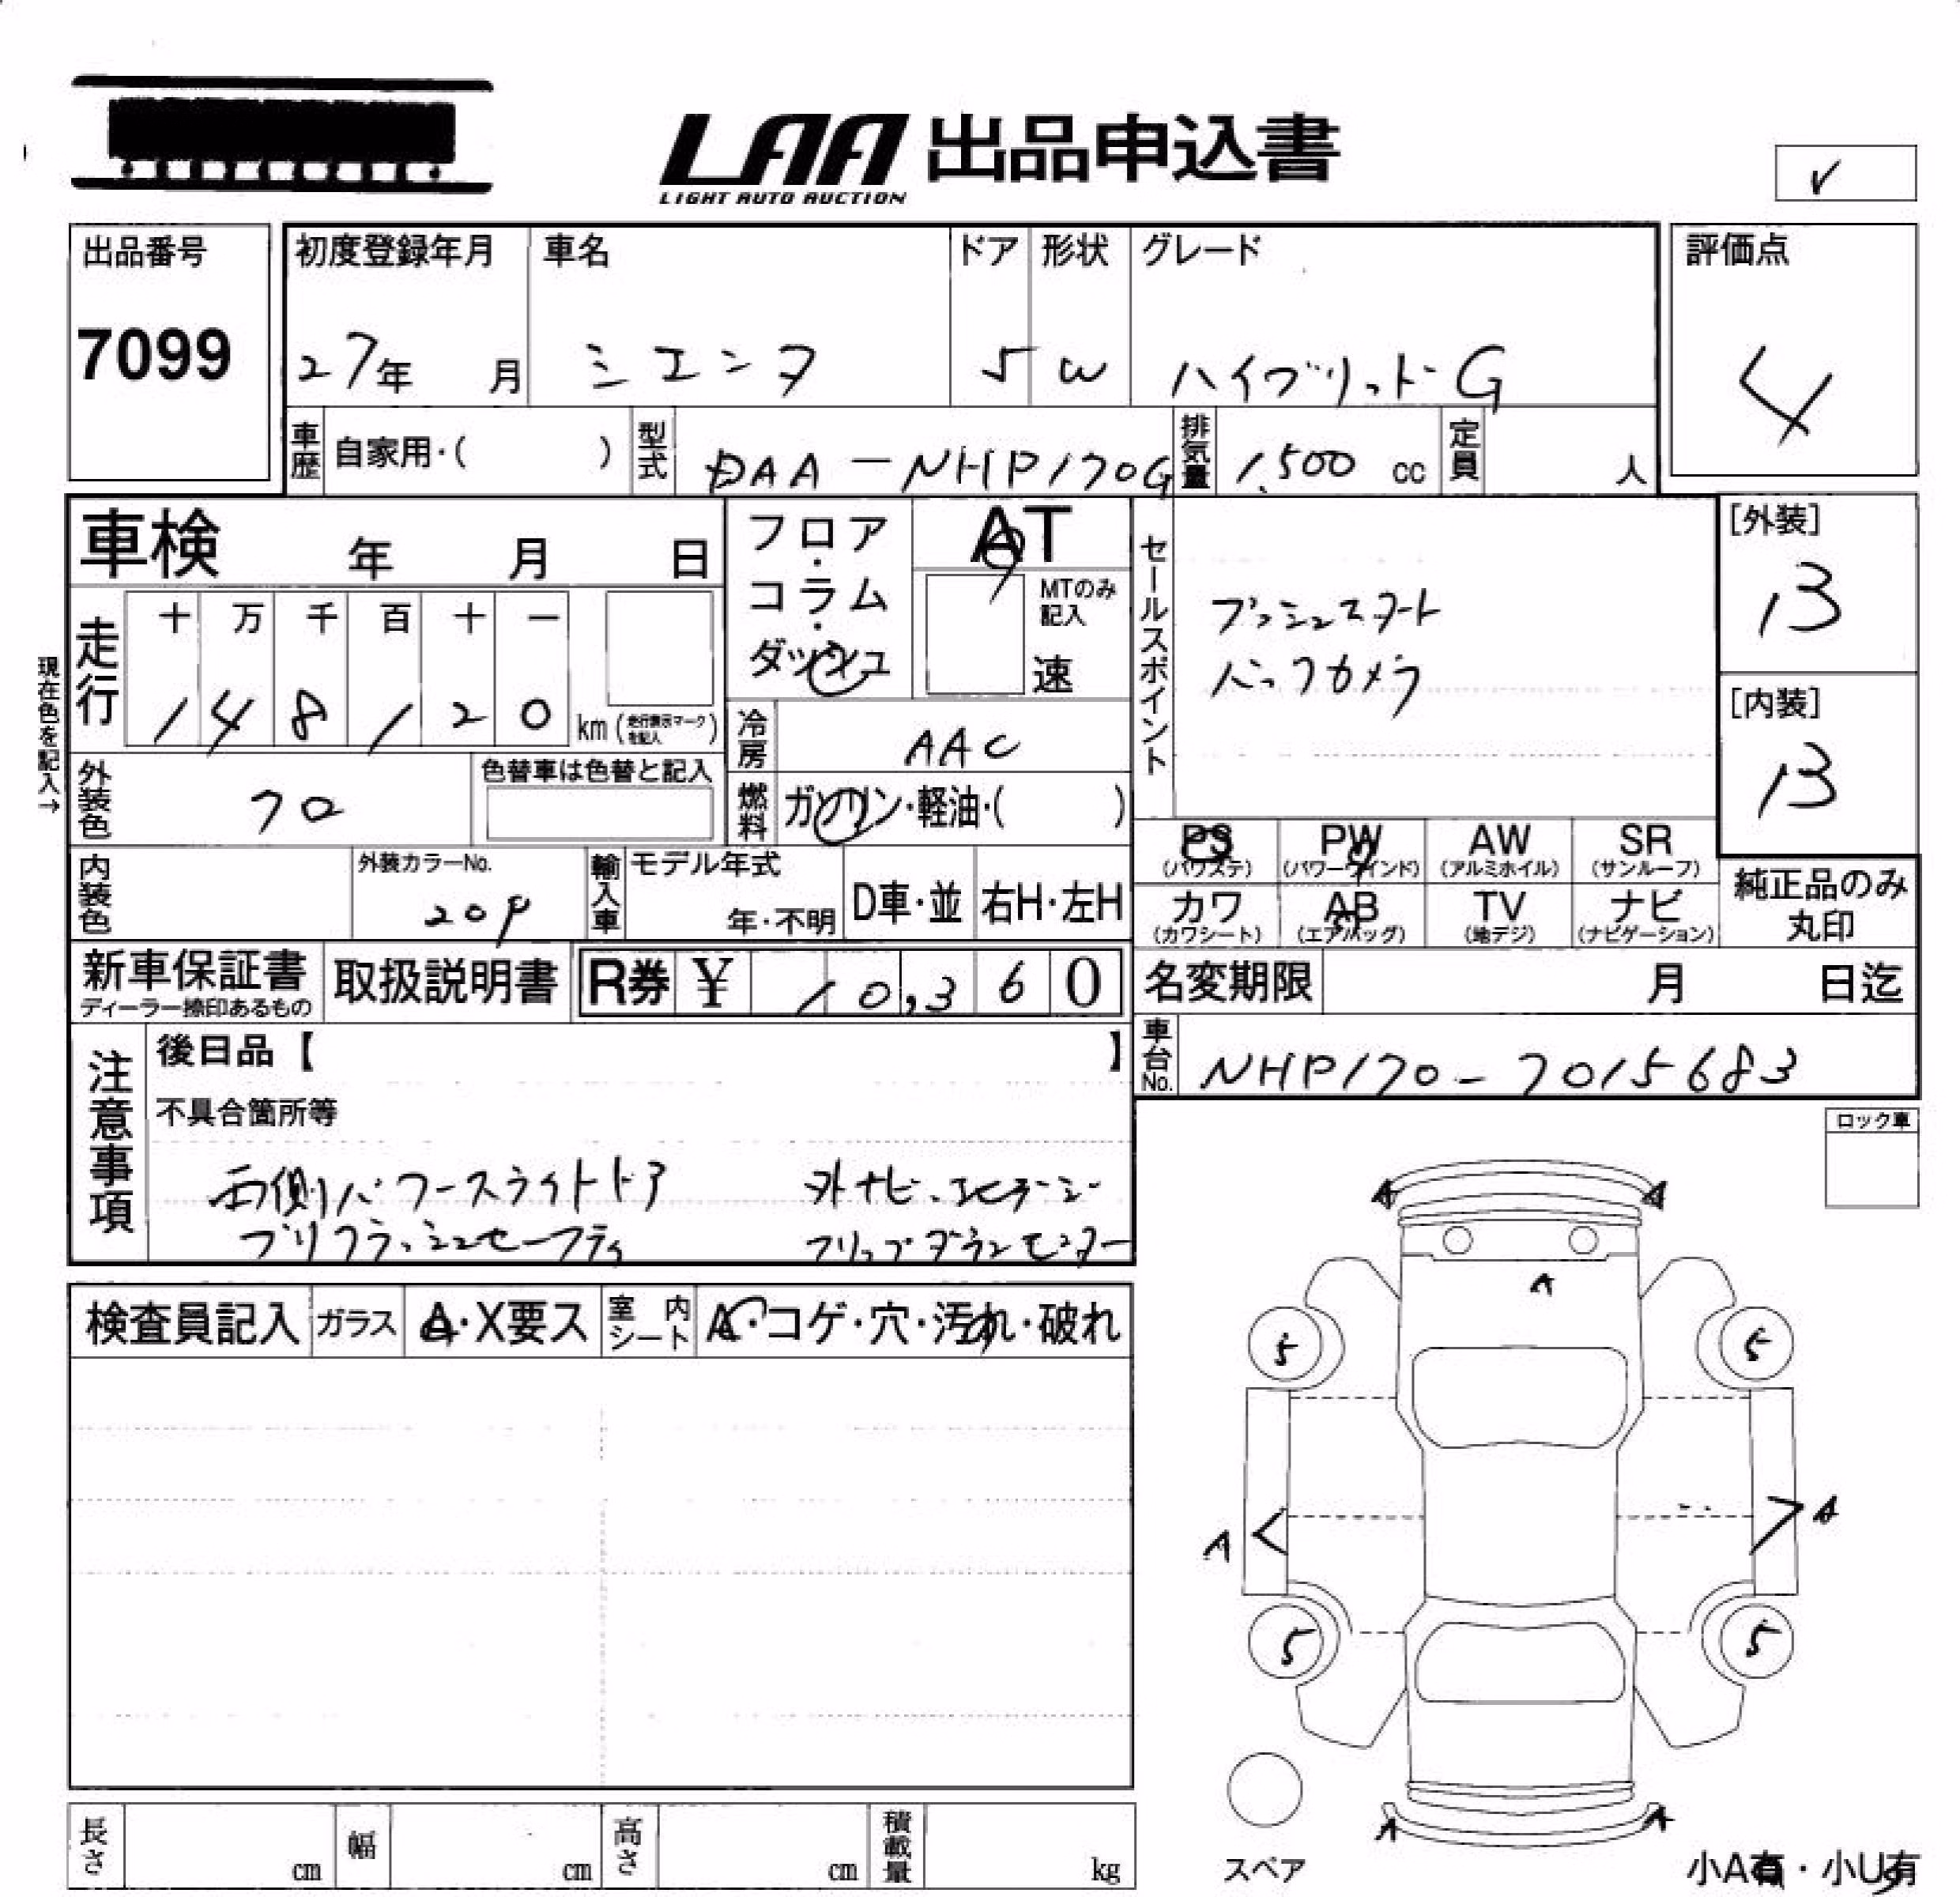 LAA 出品申込書
LIGHT AUTO AUCTION
✓
出品番号
7099
初度登録年月
27年 月
車名
シエンタ
ドア
5
形状
W
グレード
ハイブリットG
評価点
4
車歴 自家用・( )
型式 DAA-NHP170G
排気量 1,500 cc
定員 人
車検 年 月 日
フロア・コラム・ダッシュ
AT
MTのみ記入
速
セールスポイント
プッシュスタート
バックカメラ
[外装]
13
[内装]
13
現在色を記入→
走行
十 万 千 百 十 一
1 4 8 1 2 0 km (走行表示マークを記入)
冷房 AAC
外装色 クロ
色替車は色替と記入
燃料 ガソリン・軽油・( )
PS (パワステ)
PW (パワーウインド)
AW (アルミホイル)
SR (サンルーフ)
カワ (カワシート)
AB (エアバッグ)
TV (地デジ)
ナビ (ナビゲーション)
純正品のみ丸印
内装色
外装カラーNo.
209
輸入車
モデル年式
年・不明
D車・並
右H・左H
新車保証書
ディーラー捺印あるもの
取扱説明書
R券 ¥ 10,360
名変期限 月 日迄
車台No. NHP170-7015683
注意事項
後日品【 】
不具合箇所等
右側パワースライドドア 外ナビ.
プリクラッシュセーフティ フリップダウンモニター
ロック車
検査員記入
ガラス A・X要ス
室内シート A・コゲ・穴・汚れ・破れ
A A
A
5 5
A A
5 5
A A
スペア
小A有・小U有
長さ cm
幅 cm
高さ cm
積載量 kg